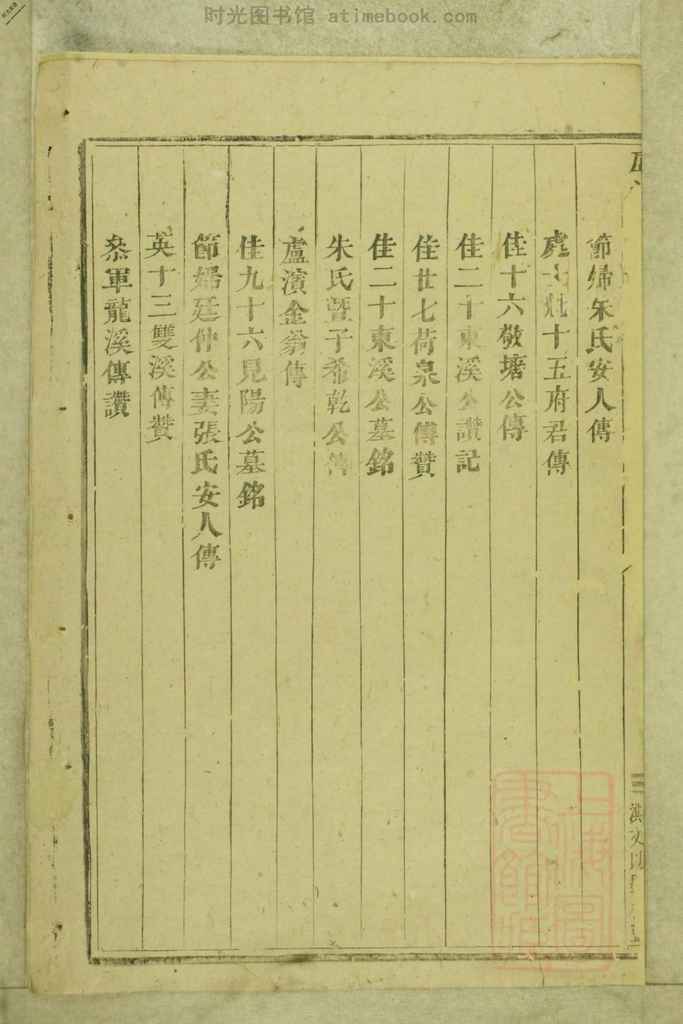 时光图书馆 atimebook.com
節婦朱氏安人傳
十五府君傳
佳十六敬塘公傳
佳二十東溪公讃記
佳廿七荷泉公傳贊
佳二十東溪公墓銘
朱氏暨子希乾公傳
盧濱金翁傳
佳九十六見陽公墓銘
節婦廷仲公妻張氏安人傳
英十三雙溪傳贊
叅軍龍溪傳讃